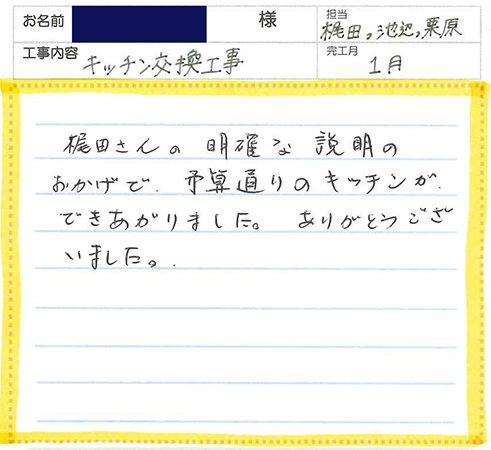 お名前 様 担当 梶田、池辺、栗原
工事内容 キッチン交換工事 完工月 1月
梶田さんの明確な説明の
おかげで、予算通りのキッチンが、
できあがりました。ありがとうござ
いました。